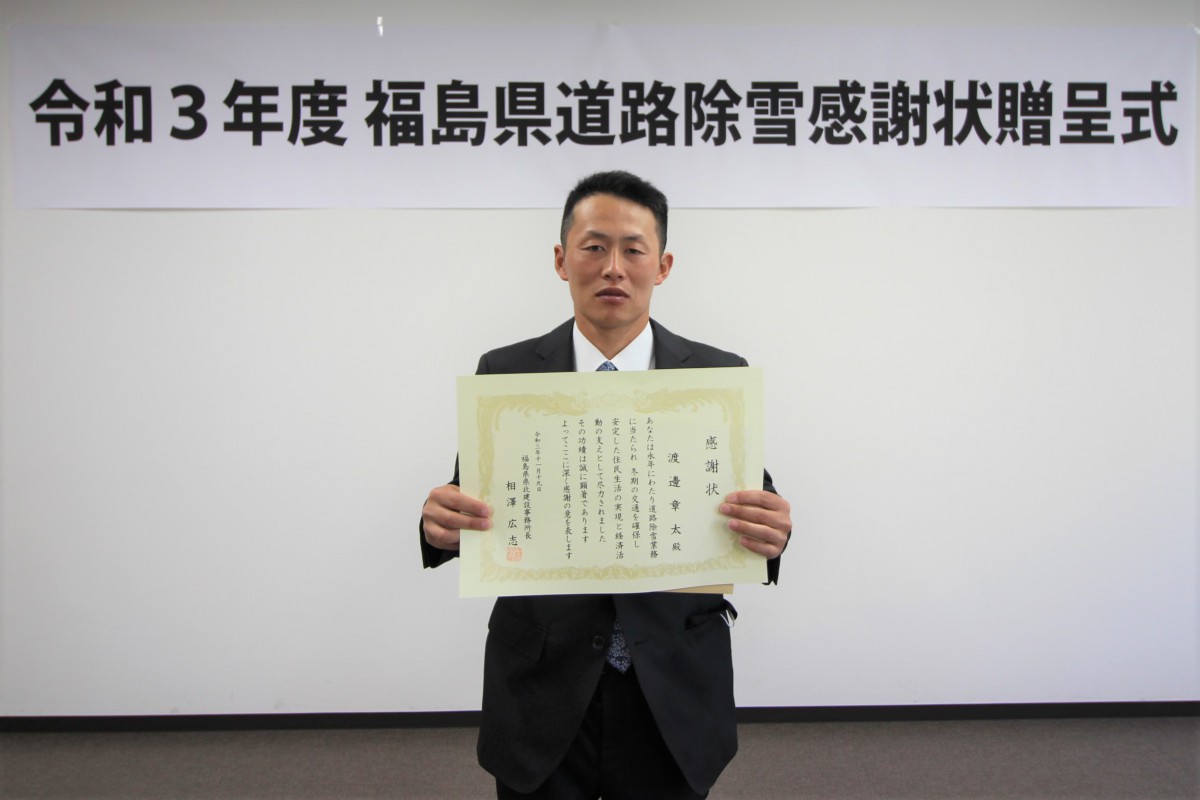 令和３年度 福島県道路除雪感謝状贈呈式
感謝状
渡邉章太殿
あなたは永年にわたり道路除雪業務
に当たられ 冬期の交通を確保し
安定した住民生活の実現と経済活
動の支えとして尽力されました
その功績は誠に顕著であります
よってここに深く感謝の意を表します
令和三年十一月十九日
福島県県北建設事務所長
相澤広志